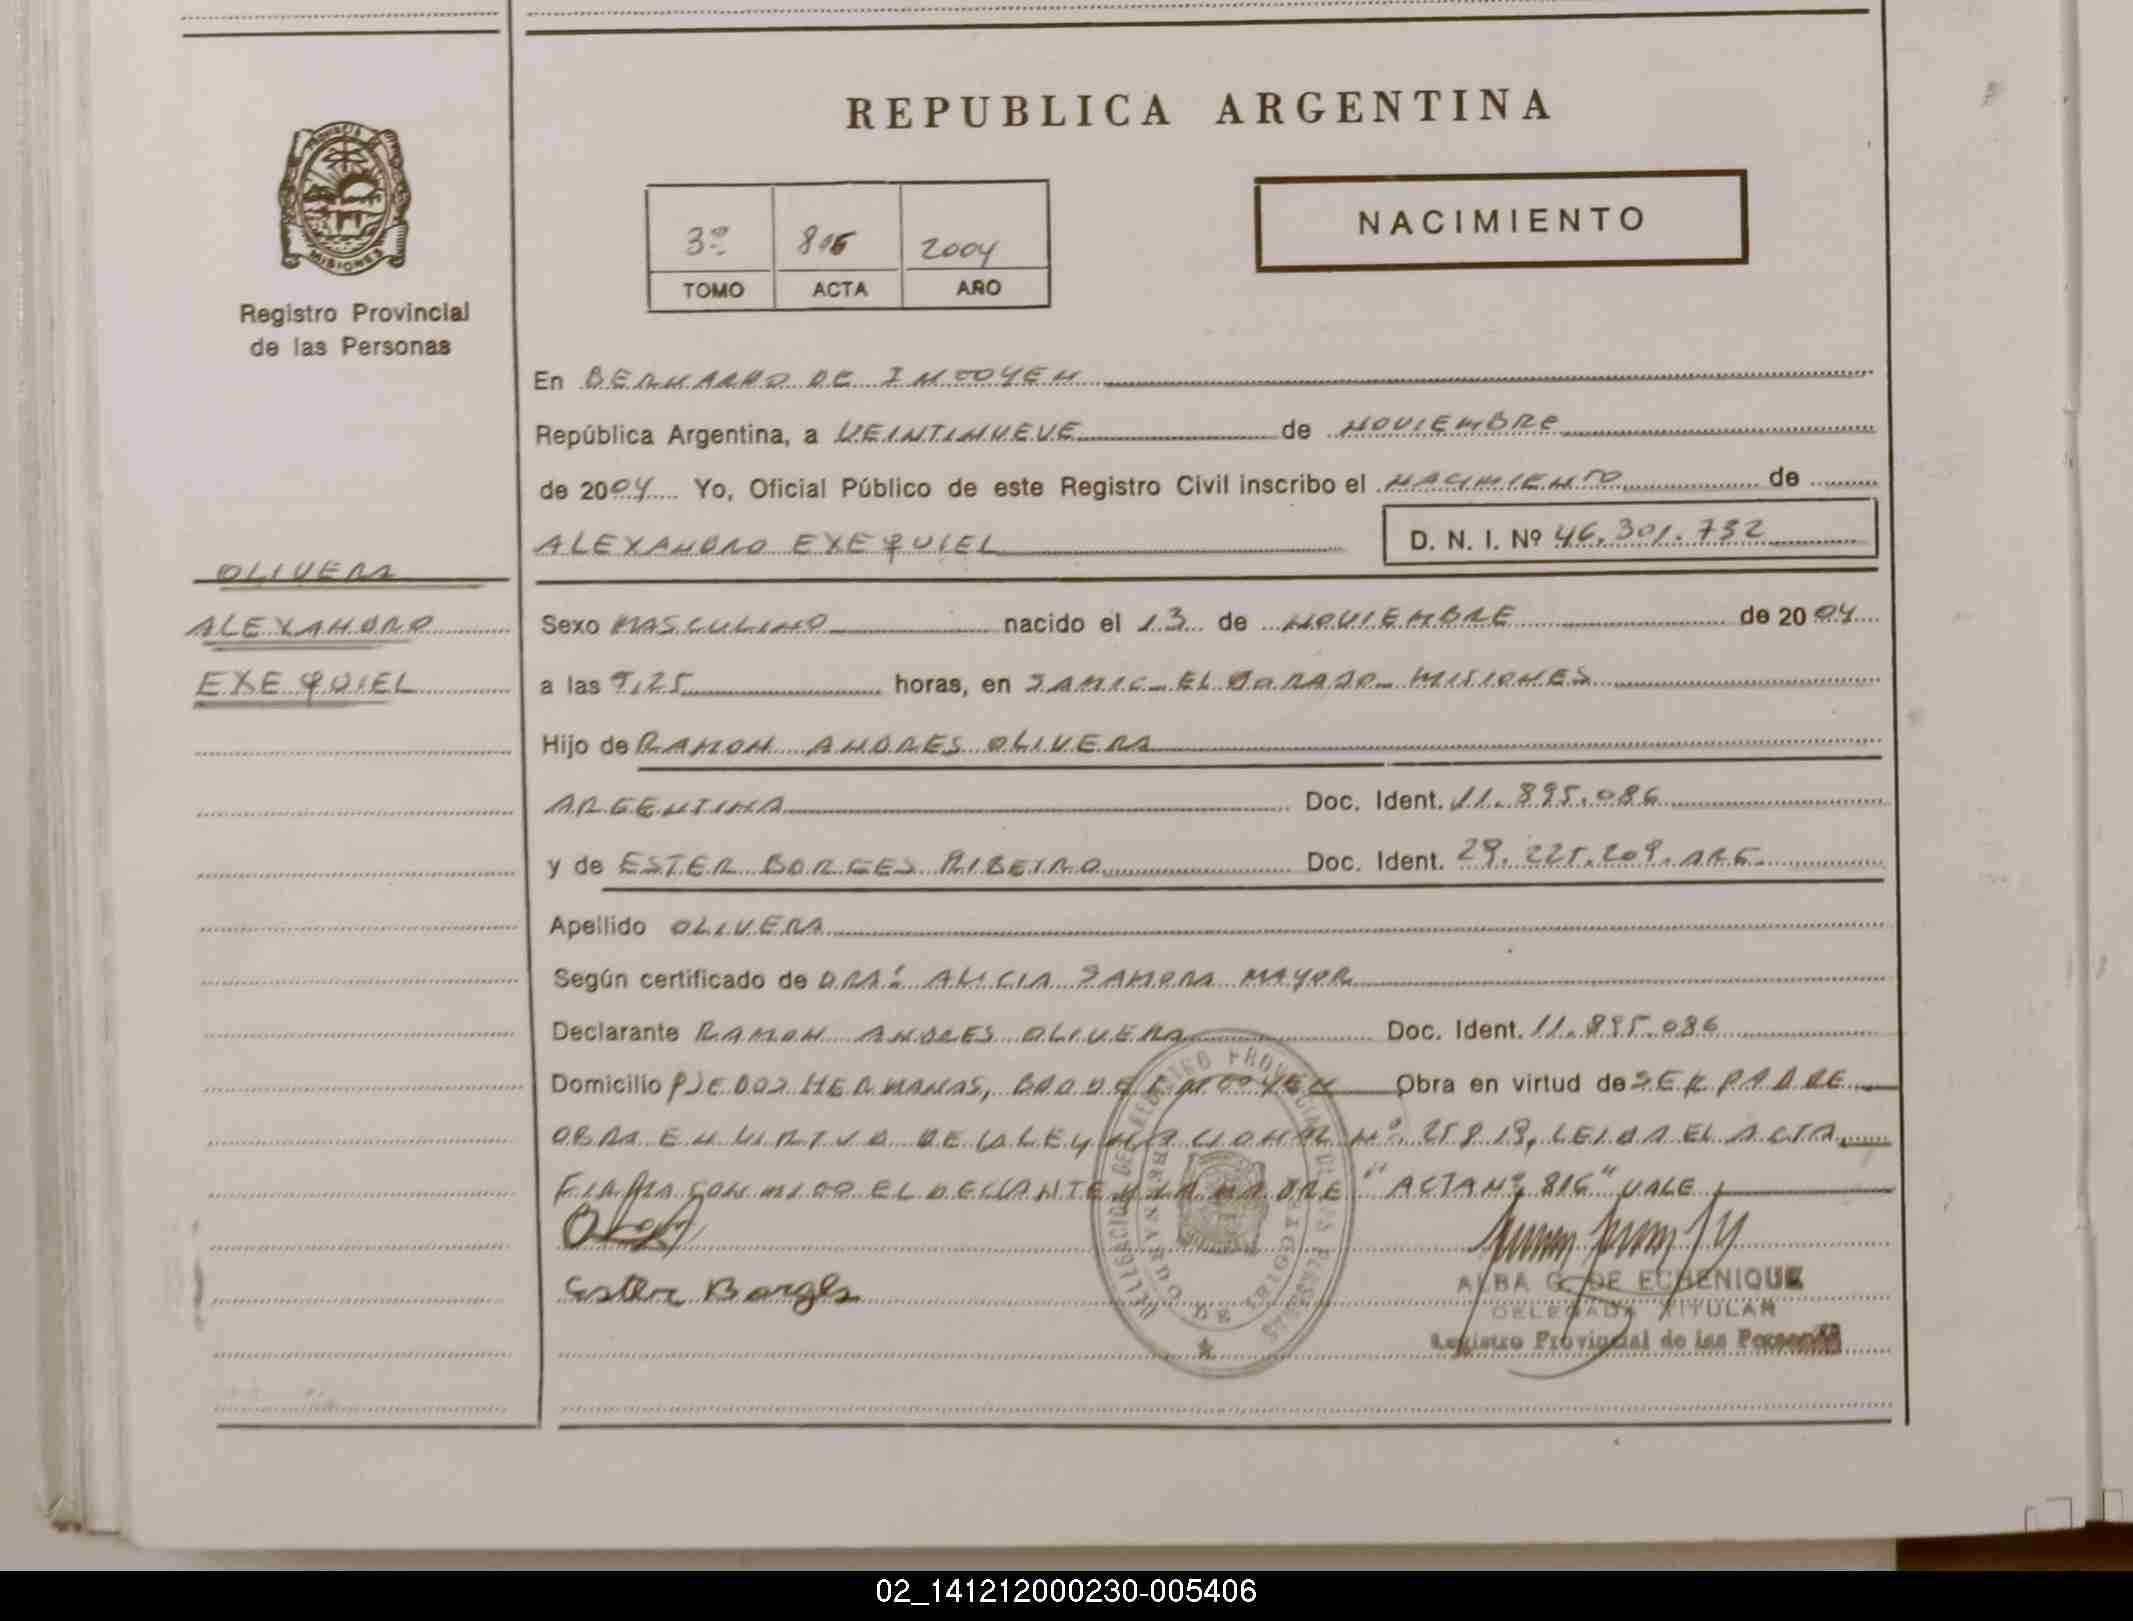 REPUBLICA ARGENTINA
PROVINCIA DE
MISIONES
Registro Provincial
de las Personas
3º 816 2004
TOMO ACTA AÑO
NACIMIENTO
En BERNARDO DE IRIGOYEN
República Argentina, a VEINTINUEVE de NOVIEMBRE
de 2004 Yo, Oficial Público de este Registro Civil inscribo el NACIMIENTO de
ALEXANDRO EXEQUIEL D. N. I. Nº 46.301.732
OLIVERA
ALEXANDRO
EXEQUIEL
Sexo MASCULINO nacido el 13 de NOVIEMBRE de 2004
a las 9,25 horas, en SAMIC - ELDORADO - MISIONES
Hijo de RAMON ANDRES OLIVERA
ARGENTINA Doc. Ident. 11.895.086
y de ESTER BORGES RIBEIRO Doc. Ident. 29.225.209. ARG.
Apellido OLIVERA
Según certificado de DRA: ALICIA SANDRA MAYOR
Declarante RAMON ANDRES OLIVERA Doc. Ident. 11.895.086
Domicilio PJE DOS HERMANAS, BDO DE IRIGOYEN Obra en virtud de SER PADRE
OBRA EN VIRTUD DE LA LEY NACIONAL Nº 25819, LEIDA EL ACTA
FIRMA CONMIGO EL DECLANTE Y LA MADRE "ACTA Nº 816" VALE
Ester Borges
DELEGACION DEL REGISTRO PROVINCIAL DE LAS PERSONAS
BERNARDO DE IRIGOYEN
ALBA G. DE ECHENIQUE
DELEGADA TITULAR
Registro Provincial de las Personas
02_141212000230-005406